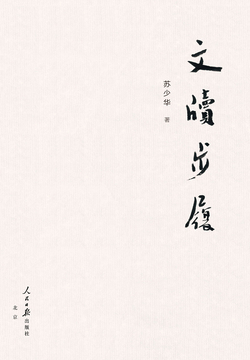 文牍步履
苏少华 著
人民日报出版社
北京